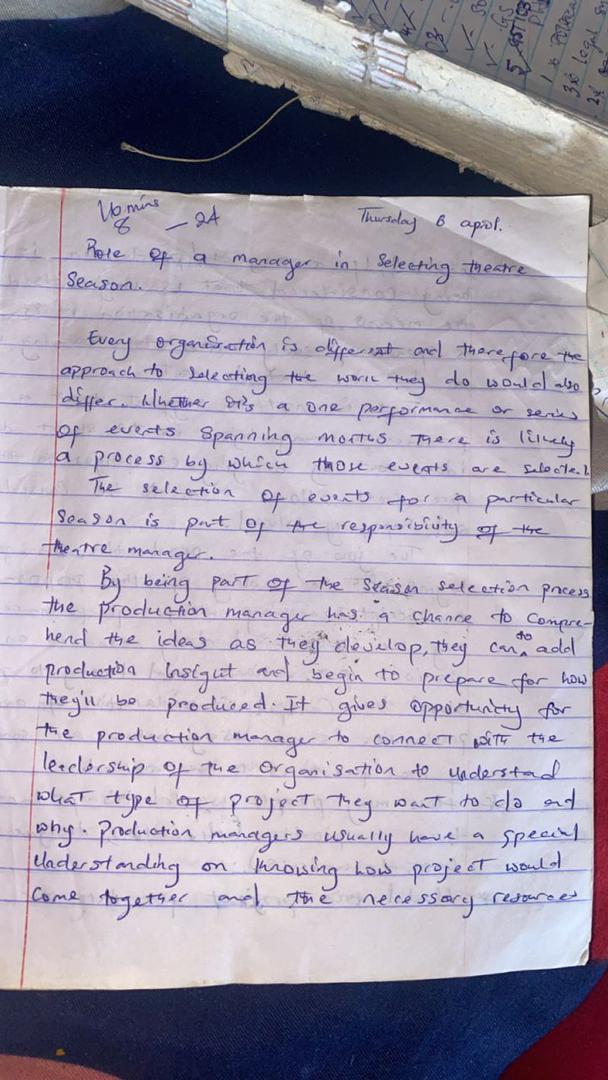 16 mins
8 - 24
Thursday 6 april.
Role of a manager in Selecting theatre
Season.
Every organisation is different and therefore the
approach to selecting the work they do would also
differ. Whether it's a one performance or series
of events spanning months there is likely
a process by which those events are selected.
The selection of events for a particular
season is part of the responsibility of the
theatre manager.
By being part of the season selection process
the production manager has a chance to compre-
hend the ideas as they develop, they can to add
production insight and begin to prepare for how
they'll be produced. It gives opportunity for
the production manager to connect with the
leadership of the organisation to understand
what type of project they want to do and
why. Production managers usually have a special
understanding on knowing how project would
come together and the necessary resources